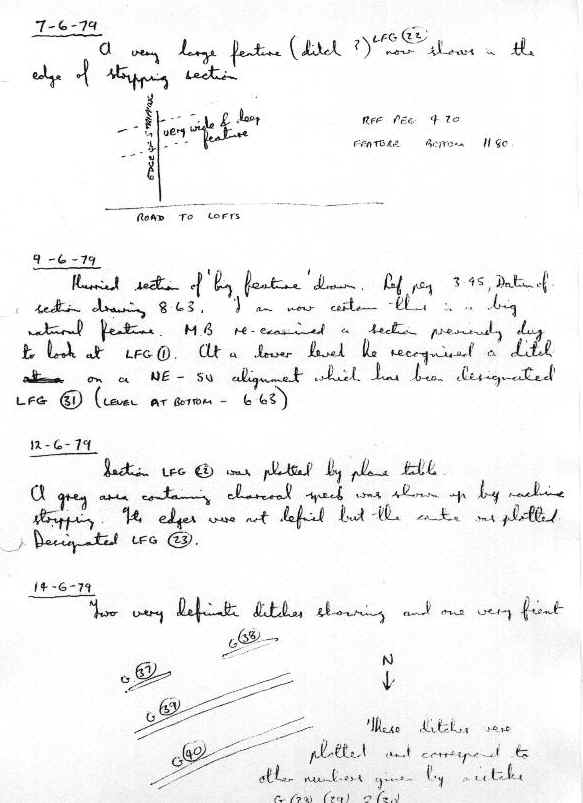 7-6-79
A very large feature (ditch ?) LFG (22) now shows in the
edge of stripping section
EDGE OF STRIPPING
very wide & deep
feature
REF PEG 4 20
FEATURE BOTTOM 11 80.
ROAD TO LOFTS
9-6-79
Hurried section of 'big feature' drawn. Ref peg 3 95, Datum of
section drawing 8 63. I am now certain this is a big
natural feature. MB re-examined a section previously dug
to look at LFG (1). At a lower level he recognised a ditch
on a NE - SW alignment which has been designated
LFG (31) (LEVEL AT BOTTOM - 6 63)
12-6-79
Section LFG (22) was plotted by plane table.
A grey area containing charcoal specs was shown up by machine
stripping. Its edges were not defined but the centre was plotted.
Designated LFG (23).
14-6-79
Two very definate ditches showing and one very fient
G (38)
G (37)
N
G (39)
G (40)
These ditches were
plotted and correspond to
other numbers given by mistake